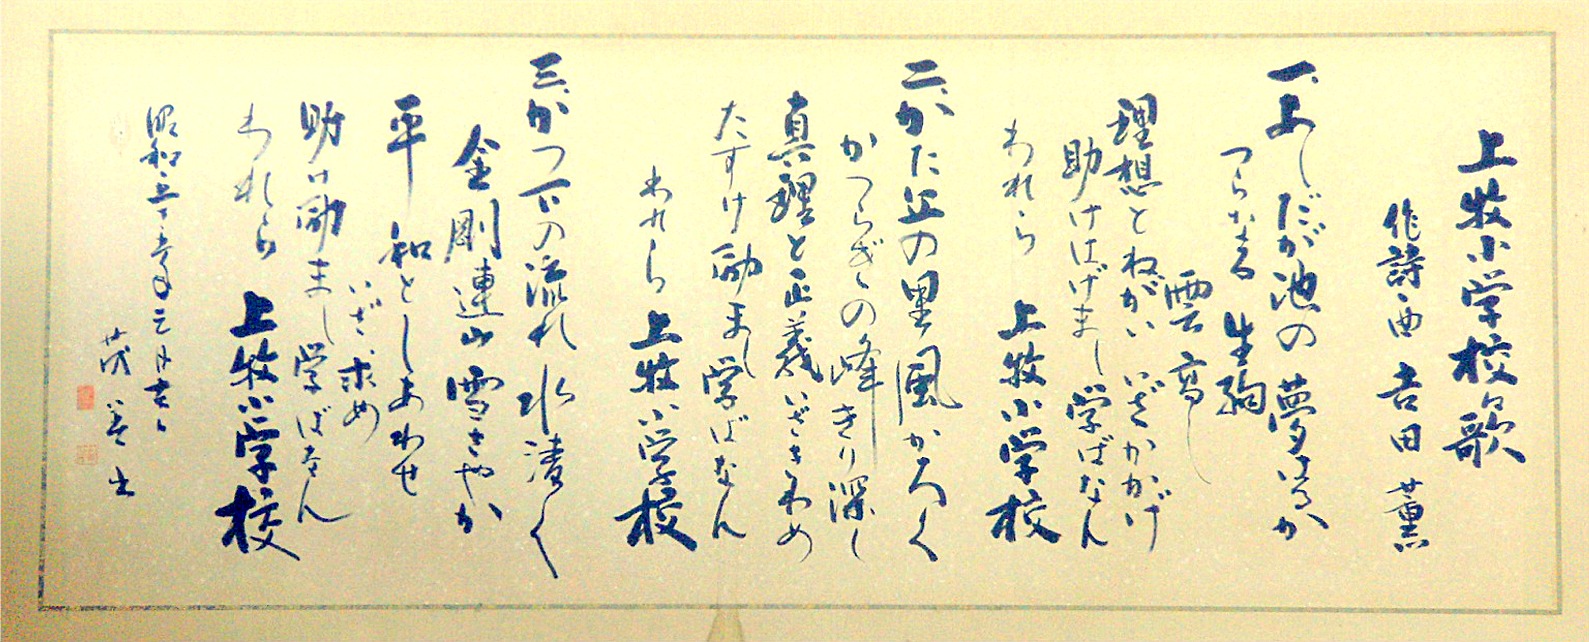 上牧小学校歌
作詩 西 吉田 薫
一、よしだが池の夢はるか
つらなる生駒
雲高し
理想とねがいいざかかげ
助けはげまし学ばなん
われら 上牧小学校
二、かた丘の里風かろく
かつらぎの峰きり深し
真理と正義いざきわめ
たすけ励まし学ばなん
われら 上牧小学校
三、かつ下の流れ水清く
金剛連山雪さやか
平和としあわせ
いざ求め
助け励まし学ばなん
われら 上牧小学校
昭和